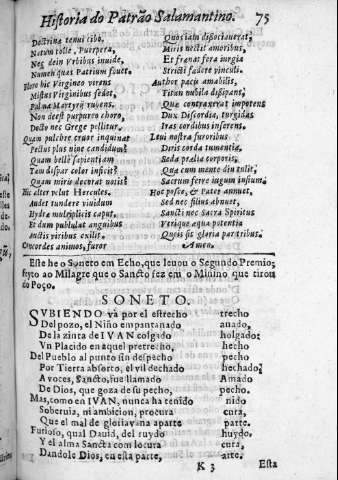 Historia do Patrão Salamantino. 75
Doctrina tenui cibo,
Natum tolle, Puerpera,
Nec dein Vrbibus inuide,
Numen quas Patrium fouet.
Flore hic Virgineo virens
Mistus Virginibus sedet,
Palma Martyrij rubens,
Non deest purpureo choro,
Docto nec Grege pellitur.
Quam pulchre cruor inquinat
Pectus plus niue candidum?
Quam bellè sapientiam
Tam dispar color inficit?
Quam miris decorat notis?
Hic alter velut Hercules,
Audet tundere viuidum
Hydra multiplicis caput,
Et dum publulat anguibus
Auctis viribus exilis.
Concordes animos, furor
Quos iam dissociauerat,
Miris nectit amoribus,
Et franas fera iurgia
Stricti fœdere vinculi.
Author pacis amabilis,
Titum nubila dissipans,
Qua contraxerat impotens
Dux Discordia, turgidas
Iras cordibus inserens.
Leui nostra furoribus
Diris corda tumentia,
Seda prælia corporis,
Qua cum mente diu tulit,
Sacrum ferre iugum insum.
Hoc posce, & Pater annuet,
Sed nec filius abnuet,
Sancti nec Sacra Spiritus
Verique aqua potentia
Queis sit gloria partribus.
Amen.
Este he o Soneto em Echo, que leuou o Segundo Premio;
feyto ao Milagre que o Sancto fez em o Minino que tirou
do Poço.
SONETO.
SVBIENDO và por el estrecho trecho
Del pozo, el Niño empantanado anado,
De la zinta de IVAN colgado holgado:
Vn Placido en aquel pretrecho, hecho
Del Pueblo al punto sin despecho pecho
Por Tierra absorto, el vil dechado hechado;
A voces, Sancto, fue llamado Amado
De Dios, que goza de su pecho. pecho.
Mas, como en IVAN, nunca ha tenido nido
Soberuia, ni ambicion, procura cura,
Que el mal de gloria vana aparte parte.
Furioso, qual Dauid, del ruydo huydo.
Y el alma Sancta con locura cura,
Dandole Dios, en esta parte, arte.
K 3 Esta